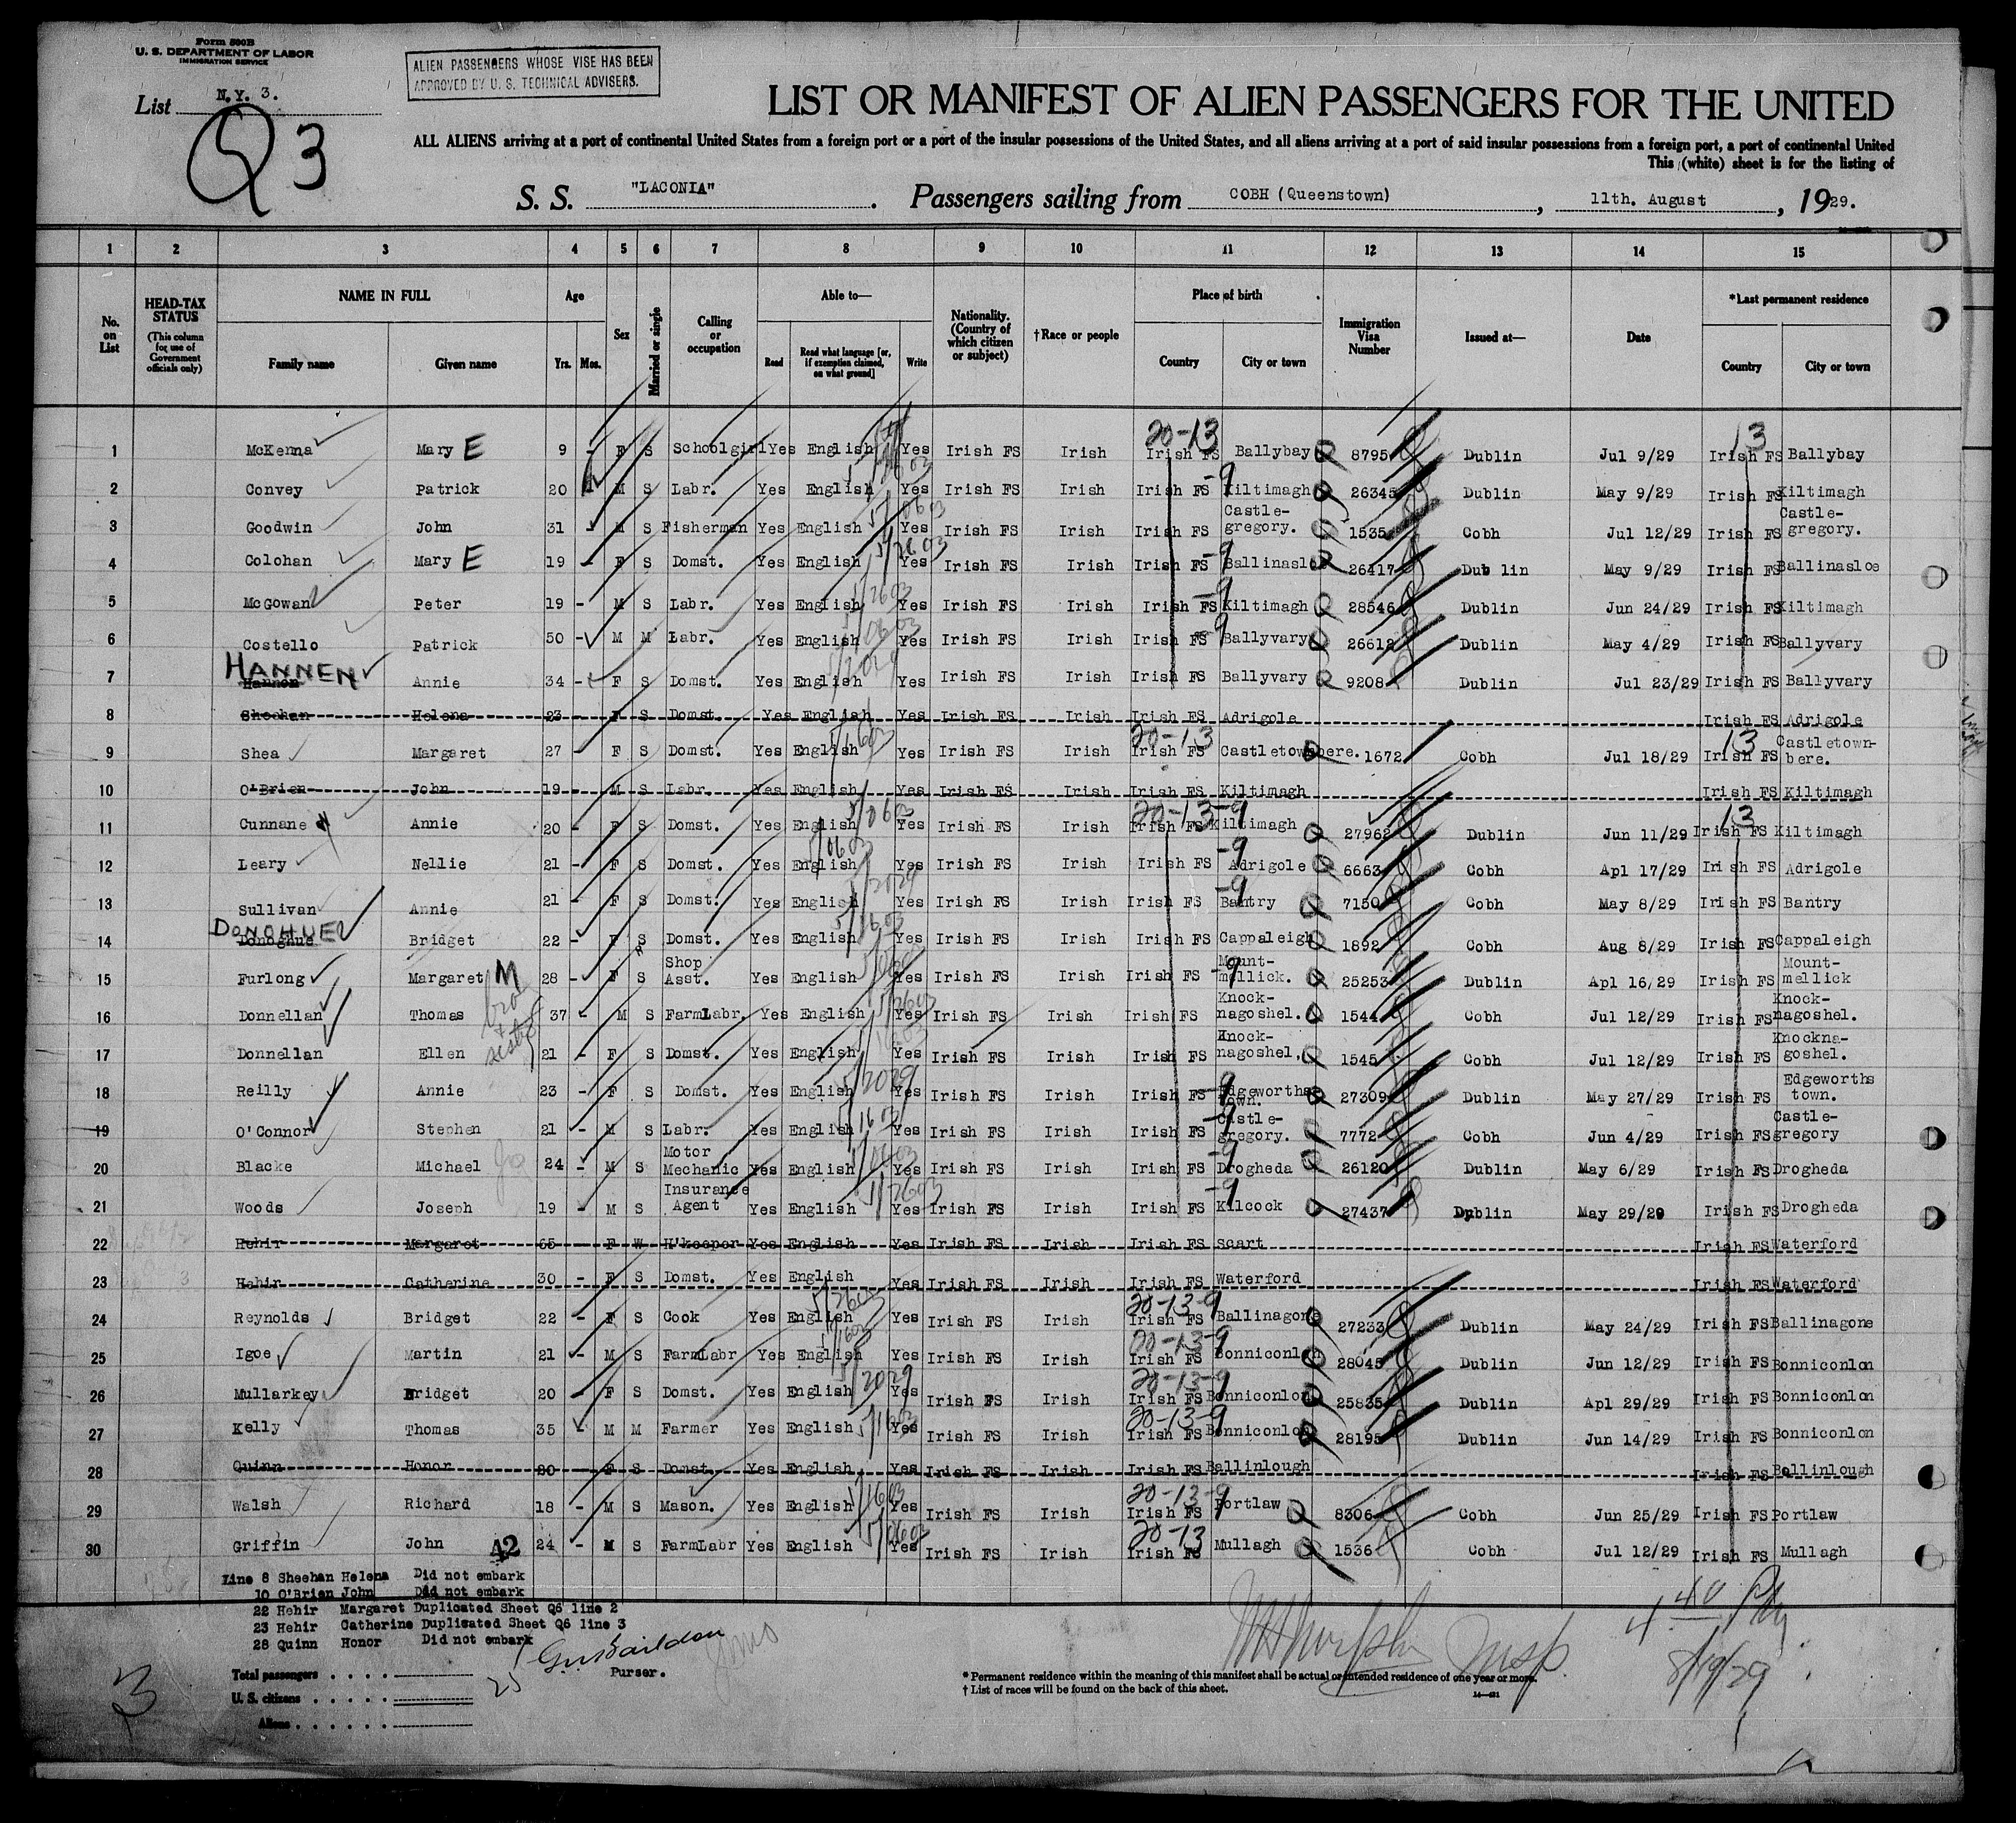 Form 500B
U. S. DEPARTMENT OF LABOR
IMMIGRATION SERVICE
List N.Y. 3.
Q 3
ALIEN PASSENGERS WHOSE VISE HAS BEEN
APPROVED BY U. S. TECHNICAL ADVISERS.
LIST OR MANIFEST OF ALIEN PASSENGERS FOR THE UNITED
ALL ALIENS arriving at a port of continental United States from a foreign port or a port of the insular possessions of the United States, and all aliens arriving at a port of said insular possessions from a foreign port, a port of continental United
This (white) sheet is for the listing of
S. S. "LACONIA". Passengers sailing from COBH (Queenstown), 11th. August, 1929.
1 2 3 4 5 6 7 8 9 10 11 12 13 14 15
No. on List
HEAD-TAX STATUS (This column for use of Government officials only)
NAME IN FULL
Family name Given name
Age
Yrs. Mos.
Sex
Married or single
Calling or occupation
Able to—
Read Read what language [or, if exemption claimed, on what ground] Write
Nationality. (Country of which citizen or subject)
†Race or people
Place of birth
Country City or town
Immigration Visa Number
Issued at—
Date
*Last permanent residence
Country City or town
1 McKenna Mary E 9 - F S Schoolgirl Yes English Yes Irish FS Irish 20-13 Irish FS Ballybay 8795 Dublin Jul 9/29 13 Irish FS Ballybay
2 Convey Patrick 20 - M S Labr. Yes English Yes Irish FS Irish Irish FS -9 Kiltimagh 26345 Dublin May 9/29 Irish FS Kiltimagh
3 Goodwin John 31 - M S Fisherman Yes English Yes Irish FS Irish Irish FS Castle-gregory. 1535 Cobh Jul 12/29 Irish FS Castle-gregory.
4 Colohan Mary E 19 - F S Domst. Yes English Yes Irish FS Irish Irish FS -9 Ballinasloe 26417 Dub lin May 9/29 Irish FS Ballinasloe
5 McGowan Peter 19 - M S Labr. Yes English Yes Irish FS Irish Irish FS -9 Kiltimagh 28546 Dublin Jun 24/29 Irish FS Kiltimagh
6 Costello Patrick 50 - M M Labr. Yes English Yes Irish FS Irish Irish FS -9 Ballyvary 26612 Dublin May 4/29 Irish FS Ballyvary
HANNEN
7 Hannon Annie 34 - F S Domst. Yes English Yes Irish FS Irish Irish FS Ballyvary 9208 Dublin Jul 23/29 Irish FS Ballyvary
8 Sheehan Helena 23 - F S Domst. Yes English Yes Irish FS Irish Irish FS Adrigole Irish FS Adrigole
9 Shea Margaret 27 F S Domst. Yes English Yes Irish FS Irish 20-13 Irish FS Castletownbere. 1672 Cobh Jul 18/29 13 Irish FS Castletown-bere.
10 O'Brien John 19 - M S Labr. Yes English Yes Irish FS Irish Irish FS Kiltimagh Irish FS Kiltimagh
11 Cunnane Annie 20 - F S Domst. Yes English Yes Irish FS Irish 20-13-9 Irish FS Kiltimagh 27962 Dublin Jun 11/29 13 Irish FS Kiltimagh
12 Leary Nellie 21 - F S Domst. Yes English Yes Irish FS Irish Irish FS -9 Adrigole 6663 Cobh Apl 17/29 Irish FS Adrigole
13 Sullivan Annie 21 - F S Domst. Yes English Yes Irish FS Irish Irish FS -9 Bantry 7150 Cobh May 8/29 Irish FS Bantry
DONOHUE
14 Donoghue Bridget 22 - F S Domst. Yes English Yes Irish FS Irish Irish FS Cappaleigh 1892 Cobh Aug 8/29 Irish FS Cappaleigh
15 Furlong Margaret M 28 - F S Shop Asst. Yes English Yes Irish FS Irish Irish FS -9 Mount-mellick. 25253 Dublin Apl 16/29 Irish FS Mount-mellick
16 Donnellan Thomas 37 - M S FarmLabr. Yes English Yes Irish FS Irish Irish FS Knock-nagoshel. 1544 Cobh Jul 12/29 Irish FS Knock-nagoshel.
17 Donnellan Ellen 21 - F S Domst. Yes English Yes Irish FS Irish Irish FS Knock-nagoshel. 1545 Cobh Jul 12/29 Irish FS Knockna-goshel.
18 Reilly Annie 23 - F S Domst. Yes English Yes Irish FS Irish Irish FS -9 Edgeworths town. 27309 Dublin May 27/29 Irish FS Edgeworths town.
19 O'Connor Stephen 21 - M S Labr. Yes English Yes Irish FS Irish Irish FS -9 Castle-gregory. 7772 Cobh Jun 4/29 Irish FS Castle-gregory
20 Blacke Michael 24 - M S Motor Mechanic Yes English Yes Irish FS Irish Irish FS -9 Drogheda 26120 Dublin May 6/29 Irish FS Drogheda
21 Woods Joseph 19 - M S Insurance Agent Yes English Yes Irish FS Irish Irish FS -9 Kilcock 27437 Dublin May 29/29 Irish FS Drogheda
22 Hehir Margaret 65 - F W H'keeper Yes English Yes Irish FS Irish Irish FS Scart Irish FS Waterford
23 Hehir Catherine 30 - F S Domst. Yes English Yes Irish FS Irish Irish FS Waterford Irish FS Waterford
24 Reynolds Bridget 22 - F S Cook Yes English Yes Irish FS Irish 20-13-9 Irish FS Ballinagone 27233 Dublin May 24/29 Irish FS Ballinagone
25 Igoe Martin 21 - M S FarmLabr Yes English Yes Irish FS Irish 20-13-9 Irish FS Bonniconlon 28045 Dublin Jun 12/29 Irish FS Bonniconlon
26 Mullarkey Bridget 20 - F S Domst. Yes English Yes Irish FS Irish 20-13-9 Irish FS Bonniconlon 25835 Dublin Apl 29/29 Irish FS Bonniconlon
27 Kelly Thomas 35 - M M Farmer Yes English Yes Irish FS Irish 20-13-9 Irish FS Bonniconlon 28195 Dublin Jun 14/29 Irish FS Bonniconlon
28 Quinn Honor 20 - F S Domst. Yes English Yes Irish FS Irish Irish FS Ballinlough Irish FS Ballinlough
29 Walsh Richard 18 - M S Mason. Yes English Yes Irish FS Irish 20-13-9 Irish FS Portlaw 8306 Cobh Jun 25/29 Irish FS Portlaw
30 Griffin John 42 24 - M S FarmLabr Yes English Yes Irish FS Irish 20-13 Irish FS Mullagh 1536 Cobh Jul 12/29 Irish FS Mullagh
Line 8 Sheehan Helena Did not embark
10 O'Brien John Did not embark
22 Hehir Margaret Duplicated Sheet Q6 line 2
23 Hehir Catherine Duplicated Sheet Q6 line 3
28 Quinn Honor Did not embark
Purser.
Total passengers . . . .
U. S. citizens . . . . .
Aliens . . . . . .
25
3
* Permanent residence within the meaning of this manifest shall be actual or intended residence of one year or more.
† List of races will be found on the back of this sheet.
8/19/29